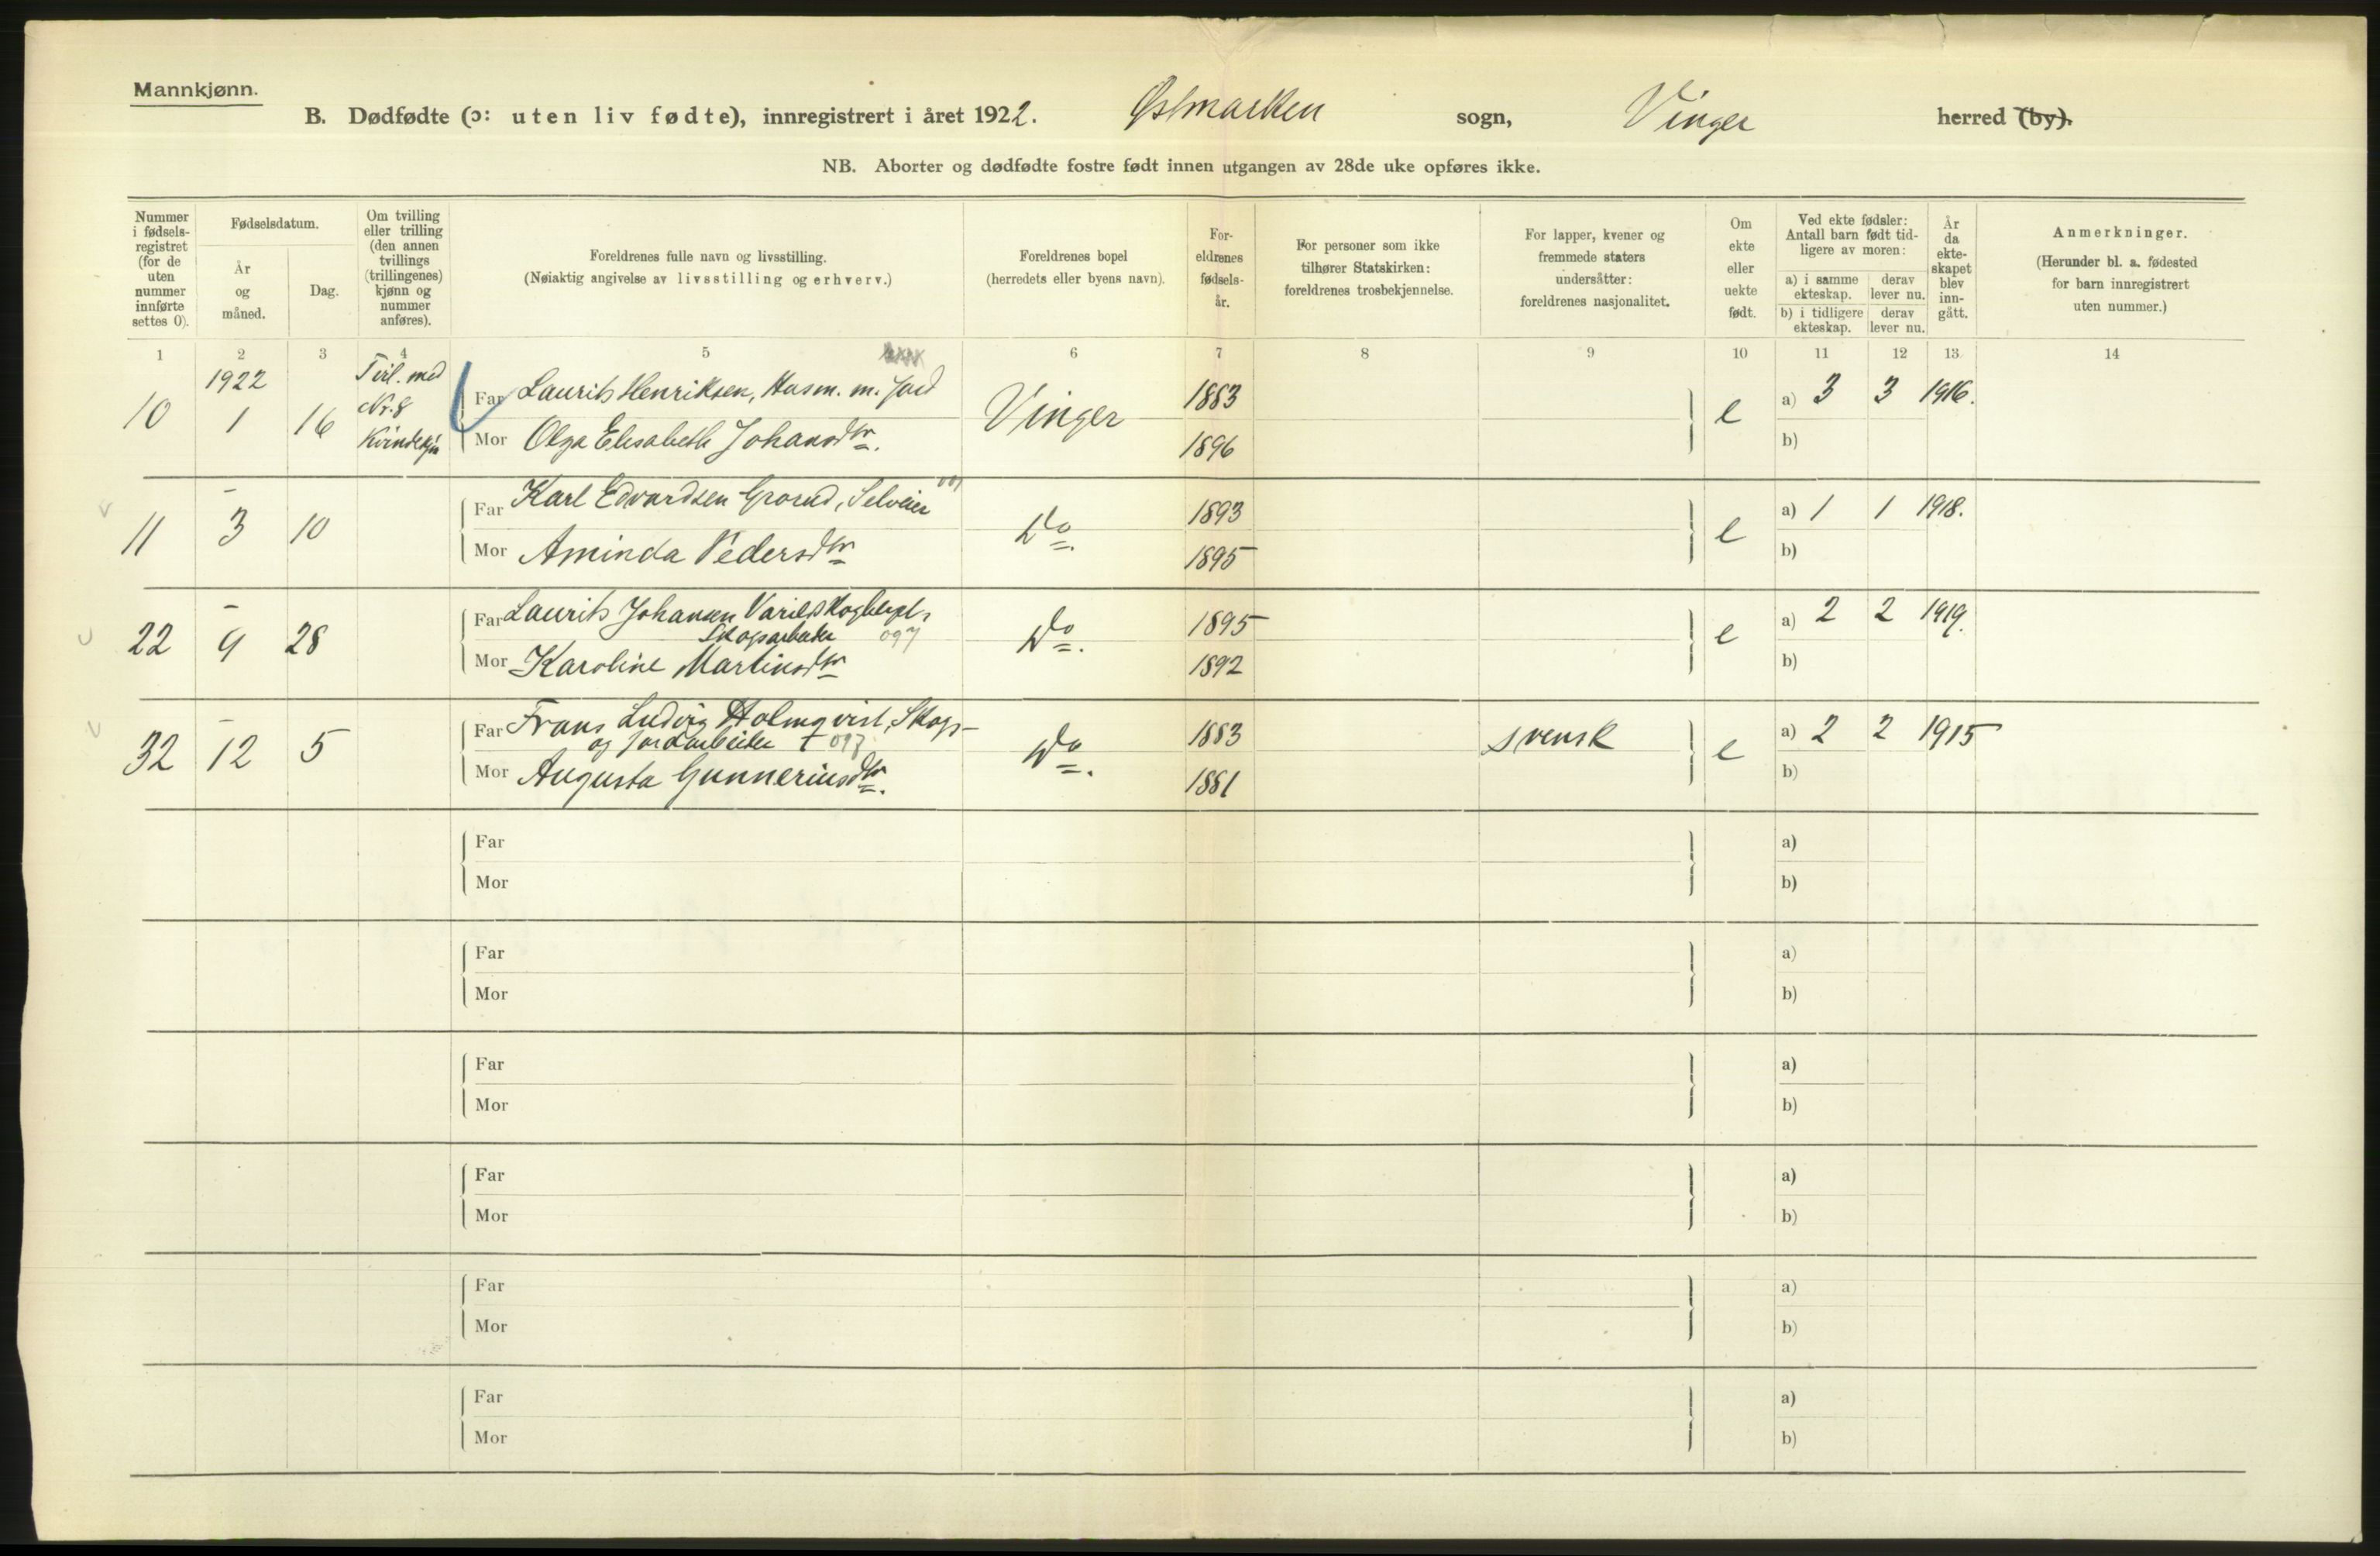 Mannkjønn.
B. Dødfødte (ɔ: uten liv fødte), innregistrert i året 1922. Østmarken sogn, Vinger herred (by).
NB. Aborter og dødfødte fostre født innen utgangen av 28de uke opføres ikke.
Nummer i fødsels-registret (for de uten nummer innførte settes 0).
Fødselsdatum.
År og måned.
Dag.
Om tvilling eller trilling (den annen tvillings (trillingenes) kjønn og nummer anføres).
Foreldrenes fulle navn og livsstilling.
(Nøiaktig angivelse av livsstilling og erhverv.)
Foreldrenes bopel
(herredets eller byens navn).
For-eldrenes fødsels-år.
For personer som ikke tilhører Statskirken: foreldrenes trosbekjennelse.
For lapper, kvener og fremmede staters undersåtter: foreldrenes nasjonalitet.
Om ekte eller uekte født.
Ved ekte fødsler: Antall barn født tid-ligere av moren:
a) i samme ekteskap. derav lever nu.
b) i tidligere ekteskap. derav lever nu.
År da ekte-skapet blev inn-gått.
Anmerkninger.
(Herunder bl. a. fødested for barn innregistrert uten nummer.)
1 2 3 4 5 6 7 8 9 10 11 12 13 14
10 1922 1 16 Tvil. med Nr. 8 Kvindekjn
Far Laurits Henriksen, Husm. m. jord Vinger 1883 e a) 3 3 1916.
Mor Olga Elisabeth Johansdtr. 1896 b)
11 - 3 10
Far Karl Edvardsen Grorud, Selveier Do 1893 e a) 1 1 1918.
Mor Aminda Pedersdtr 1895 b)
22 - 9 28
Far Laurits Johansen
Skogsarbeider 097 Do. 1895 e a) 2 2 1919.
Mor Karoline Martinsdtr 1892 b)
32 - 12 5
Far Frans Ludvig Holmqvist, Skogs-
og jordarbeider 097 Do. 1883 svensk e a) 2 2 1915
Mor Augusta Gunneriusdtr. 1881 b)
Far a)
Mor b)
Far a)
Mor b)
Far a)
Mor b)
Far a)
Mor b)
Far a)
Mor b)
Far a)
Mor b)